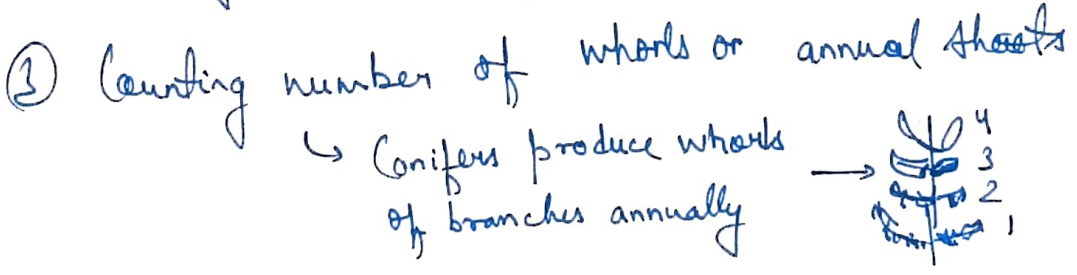 ③ Counting number of whorls or annual shoots
↳ Conifers produce whorls →
of branches annually
4
3
2
1